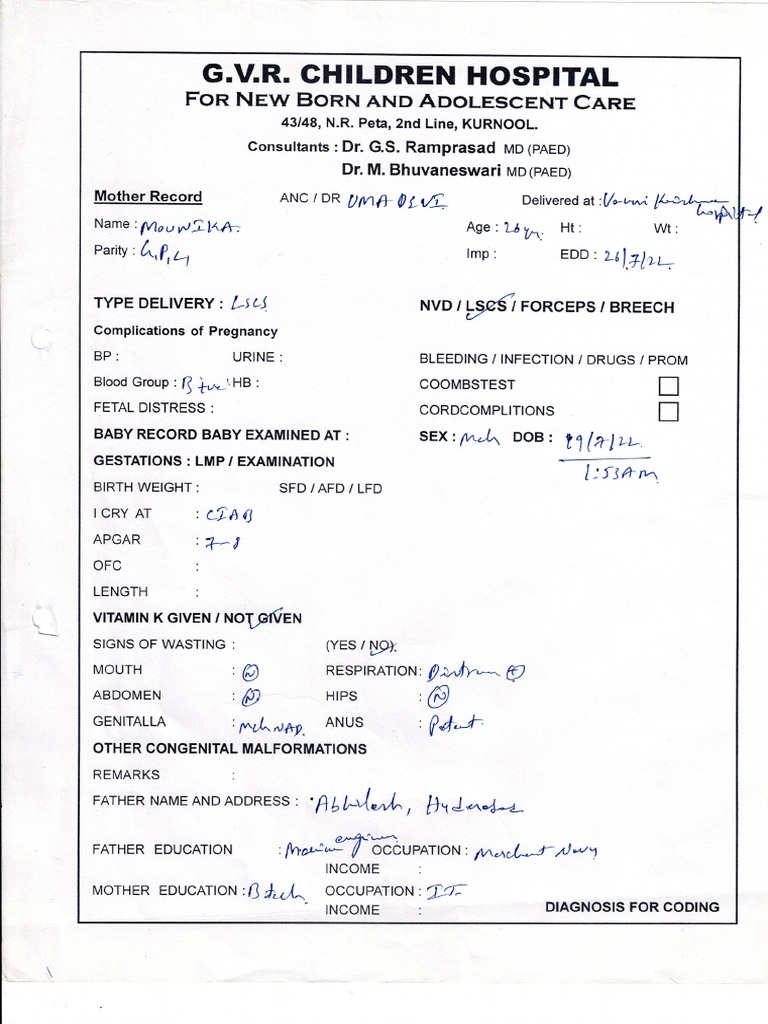 G.V.R. CHILDREN HOSPITAL
FOR NEW BORN AND ADOLESCENT CARE
43/48, N.R. Peta, 2nd Line, KURNOOL.
Consultants : Dr. G.S. Ramprasad MD (PAED)
Dr. M. Bhuvaneswari MD (PAED)
Mother Record ANC / DR UMA DEVI Delivered at : Krishna Hospital
Name : MOUNIKA. Age : 26 yr. Ht : Wt :
Parity : G1P1L1 Imp : EDD : 26/7/22
TYPE DELIVERY : LSCS NVD / LSCS / FORCEPS / BREECH
Complications of Pregnancy
BP : URINE : BLEEDING / INFECTION / DRUGS / PROM
Blood Group : B +ve HB : COOMBSTEST
FETAL DISTRESS : CORDCOMPLITIONS
BABY RECORD BABY EXAMINED AT : SEX : Mch DOB : 19/7/22
1:53AM
GESTATIONS : LMP / EXAMINATION
BIRTH WEIGHT : SFD / AFD / LFD
I CRY AT : CIAB
APGAR : 7-8
OFC :
LENGTH :
VITAMIN K GIVEN / NOT GIVEN
SIGNS OF WASTING : (YES / NO).
MOUTH : N RESPIRATION : Distress +
ABDOMEN : N HIPS : N
GENITALLA : Mch NAD. ANUS : Patent
OTHER CONGENITAL MALFORMATIONS
REMARKS :
FATHER NAME AND ADDRESS : Abhilash, Hyderabad
FATHER EDUCATION : Marine engineer OCCUPATION : Merchant Navy
INCOME :
MOTHER EDUCATION : B tech OCCUPATION : IT
INCOME : DIAGNOSIS FOR CODING